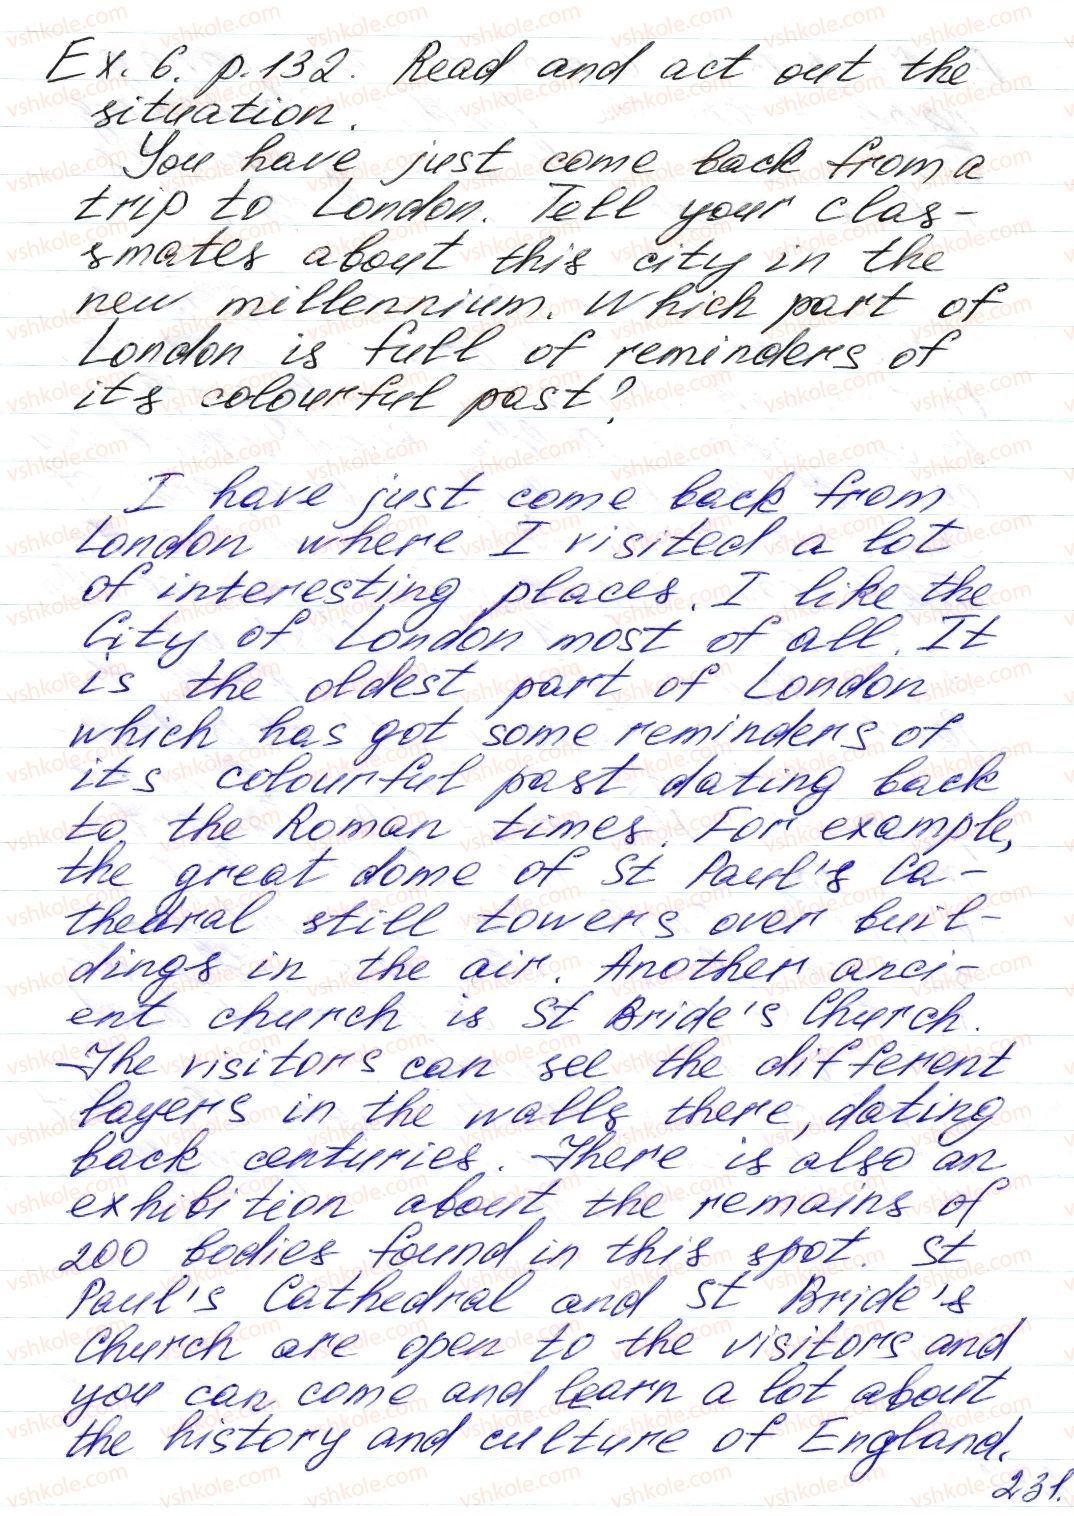 Ex. 6. p. 132. Read and act out the
situation.
You have just come back from a
trip to London. Tell your clas-
smates about this city in the
new millennium. Which part of
London is full of reminders of
its colourful past?
I have just come back from
London where I visited a lot
of interesting places. I like the
City of London most of all. It
is the oldest part of London
which has got some reminders of
its colourful past dating back
to the Roman times. For example,
the great dome of St Paul's Ca-
thedral still towers over buil-
dings in the air. Another anci-
ent church is St Bride's Church.
The visitors can see the different
layers in the walls there, dating
back centuries. There is also an
exhibition about the remains of
200 bodies found in this spot. St
Paul's Cathedral and St Bride's
Church are open to the visitors and
you can come and learn a lot about
the history and culture of England.
231.